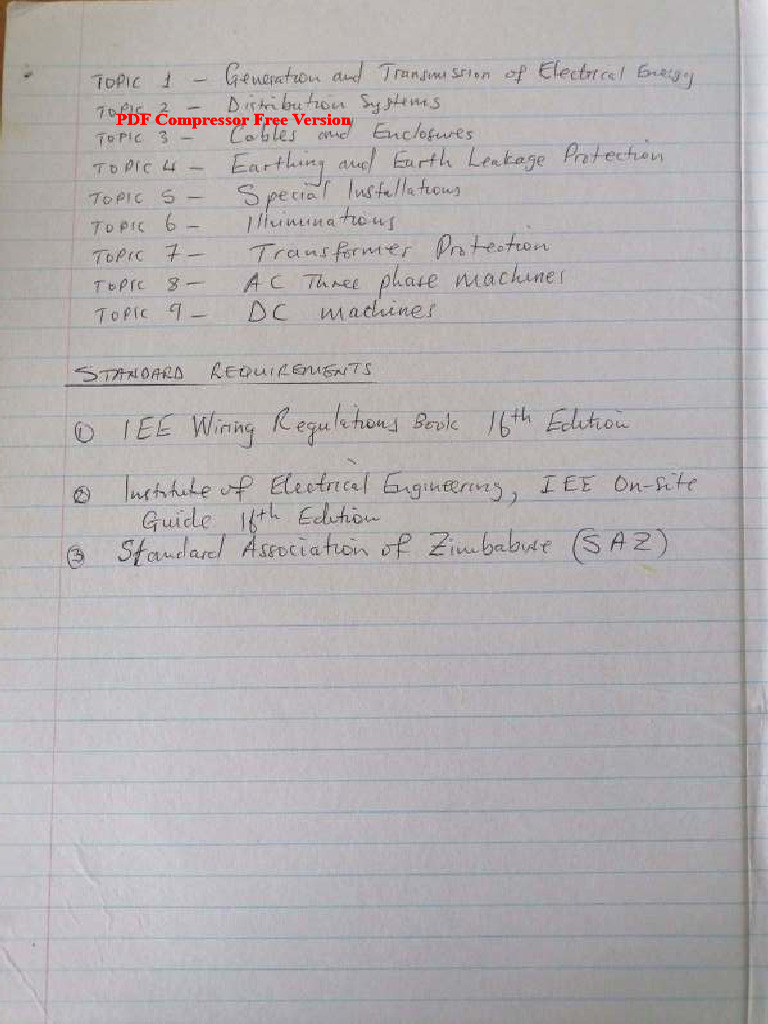 TOPIC 1 - Generation and Transmission of Electrical Energy
TOPIC 2 - Distribution Systems
PDF Compressor Free Version
TOPIC 3 - Cables and Enclosures
TOPIC 4 - Earthing and Earth Leakage Protection
TOPIC 5 - Special Installations
TOPIC 6 - Illuminations
TOPIC 7 - Transformer Protection
TOPIC 8 - AC Three phase machines
TOPIC 9 - DC machines
STANDARD REQUIREMENTS
① IEE Wiring Regulations Book 16th Edition
② Institute of Electrical Engineering, IEE On-site
Guide 16th Edition
③ Standard Association of Zimbabwe (SAZ)